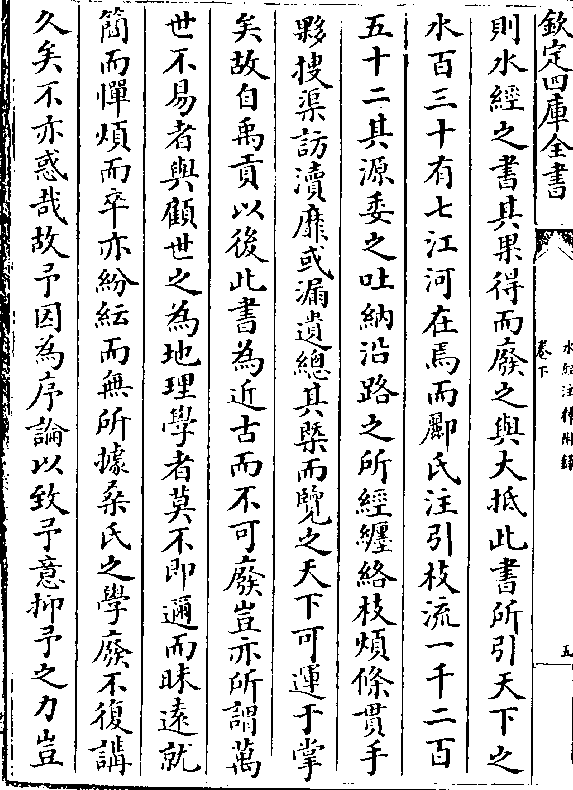 欽定四庫全書
水經注釋附錄
卷下
五
則水經之書其果得而廢之與大抵此書所引天下之
水百三十有七江河在焉而酈氏注引枝流一千二百
五十二其源委之吐納沿路之所經纒絡枝煩條貫手
夥搜渠訪瀆靡或漏遺總其槩而覽之天下可運于掌
矣故自禹貢以後此書為近古而不可廢豈亦所謂萬
世不易者與顧世之為地理學者莫不即邇而昧遠就
簡而憚煩而卒亦紛紜而無所據桑氏之學廢不復講
久矣不亦惑哉故予因為序論以致予意抑予之力豈